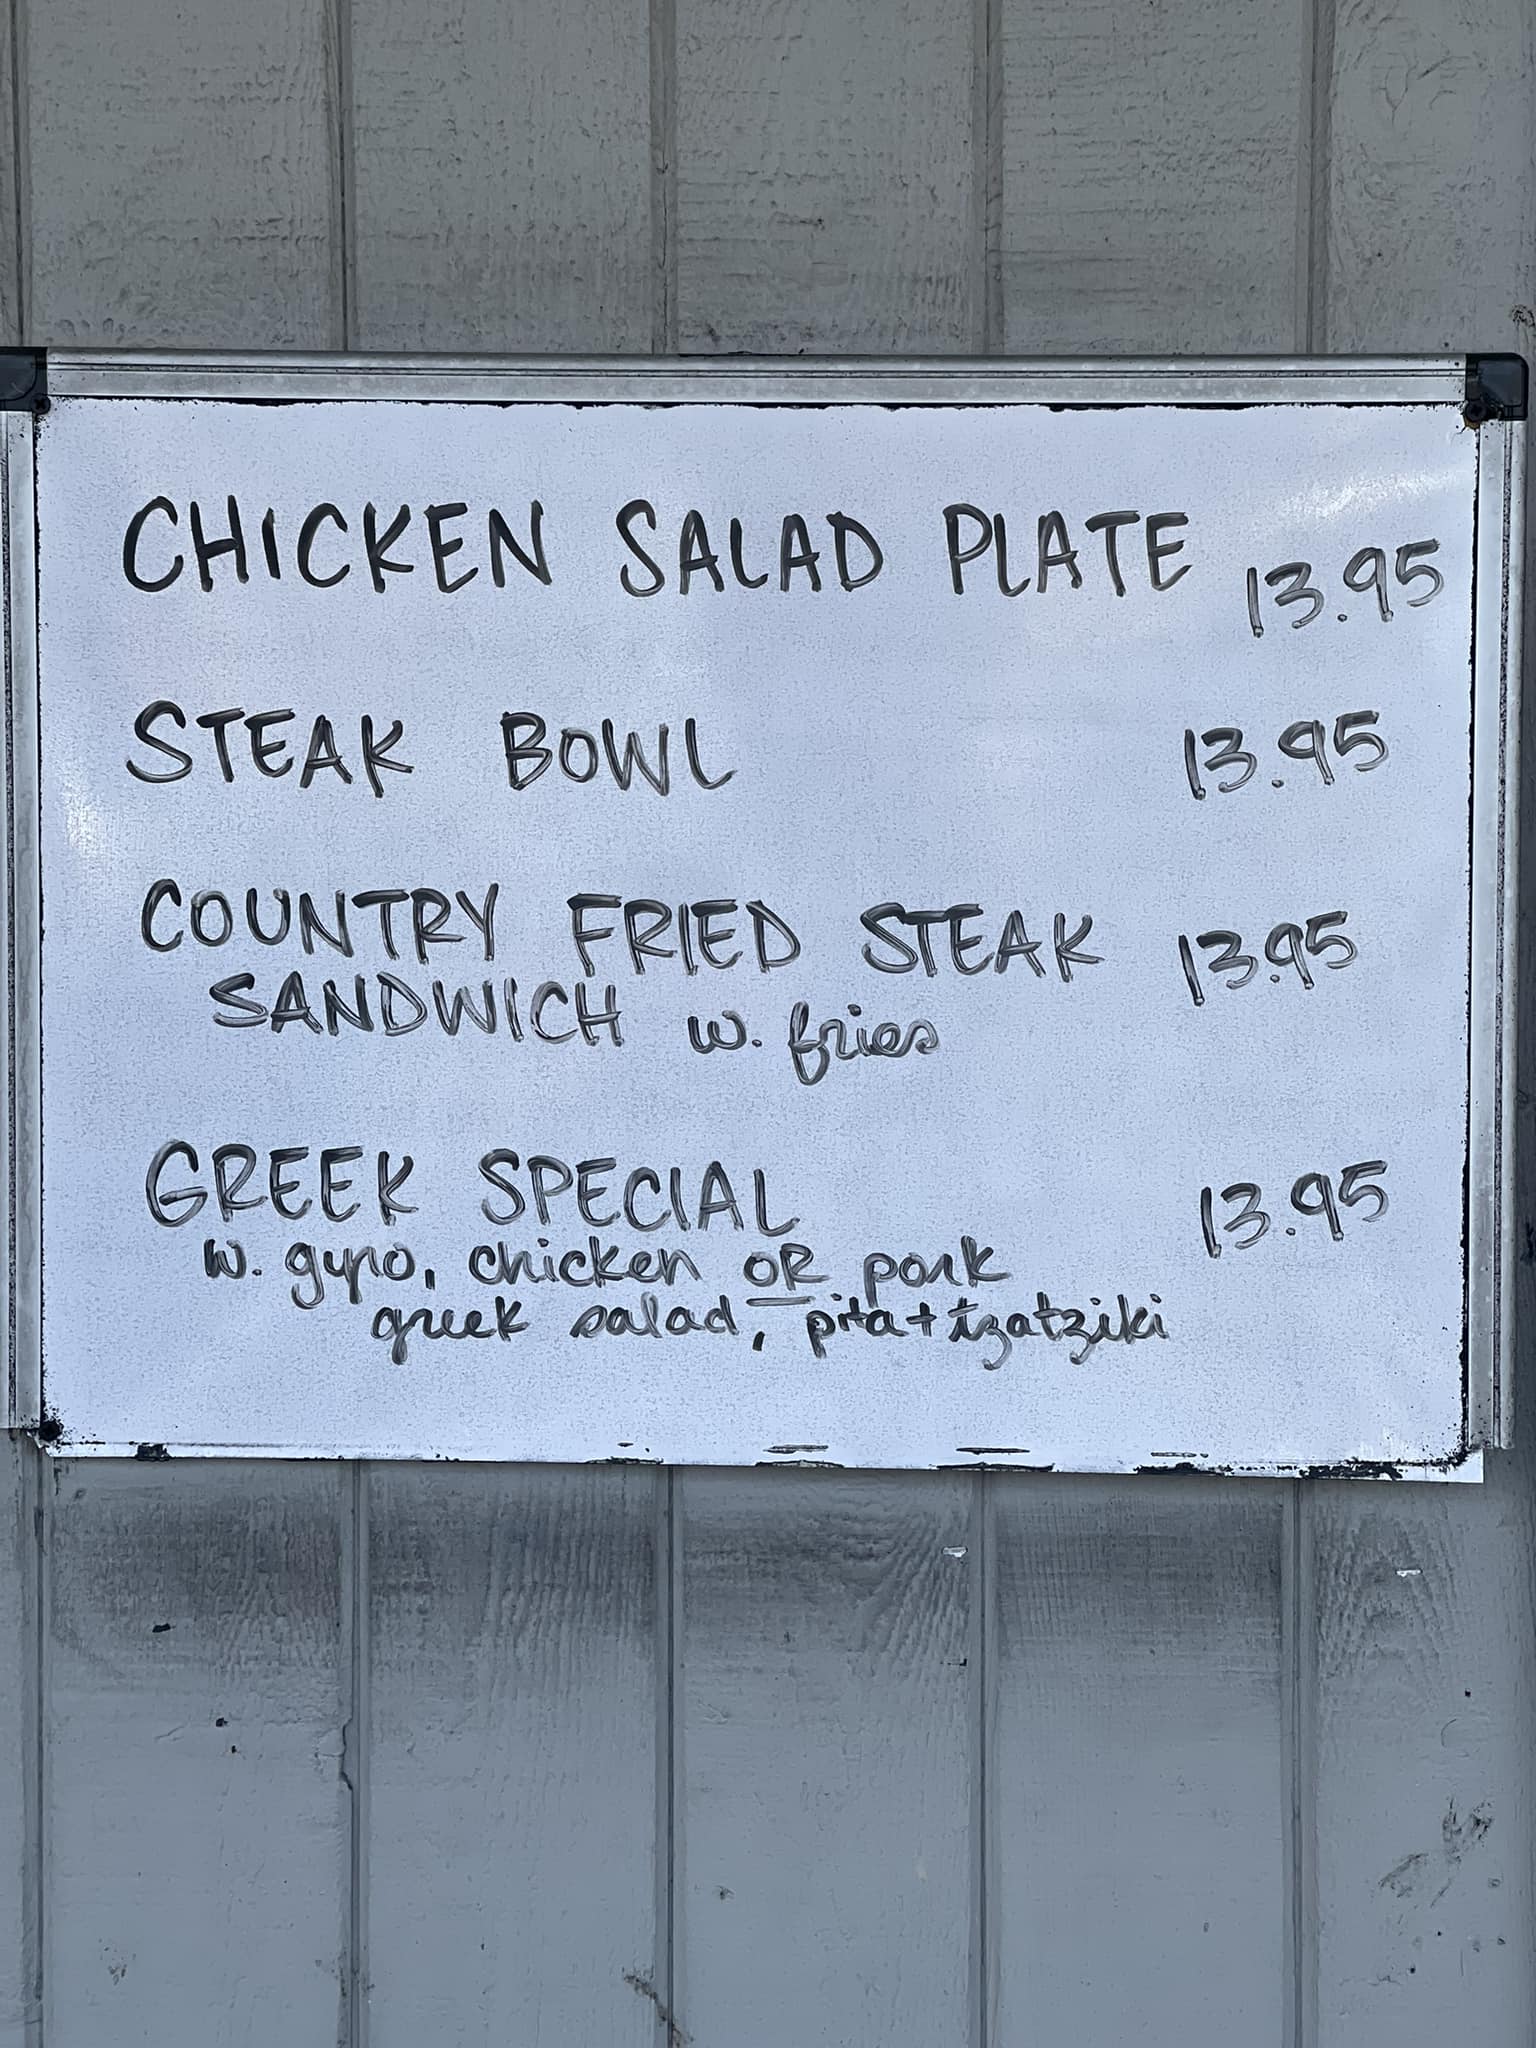 CHICKEN SALAD PLATE 13.95
STEAK BOWL 13.95
COUNTRY FRIED STEAK 13.95
SANDWICH w. fries
GREEK SPECIAL 13.95
w. gyro, chicken OR pork
greek salad, pita + tzatziki